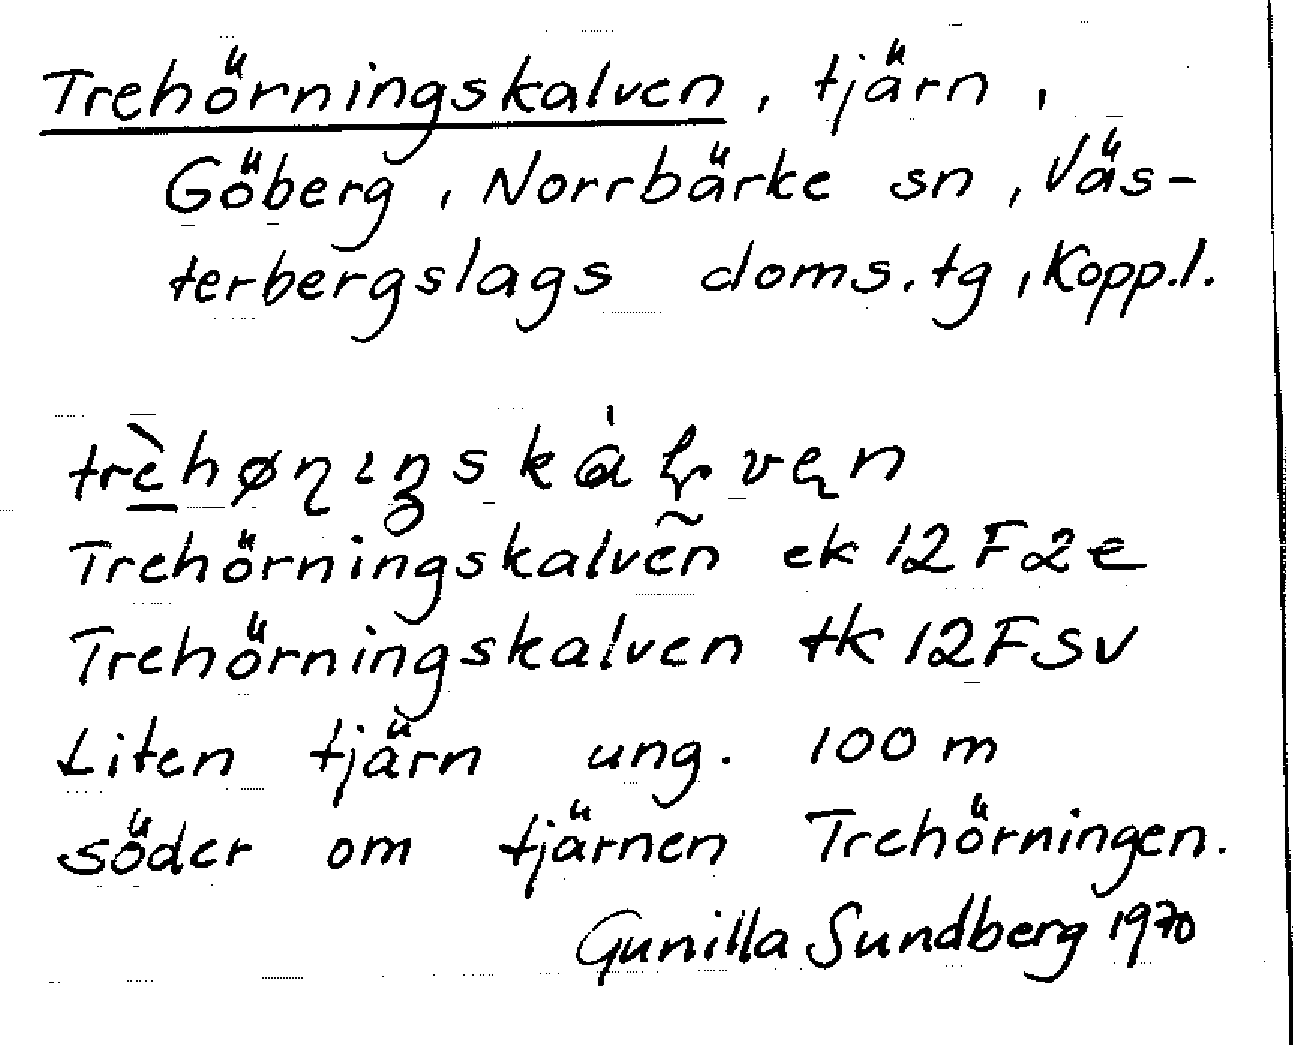 Trehörningskalven, tjärn,
Göberg, Norrbärke sn, Väs-
terbergslags doms.tg, Kopp.l.
Trehörningskalveñ ek 12F2e
Trehörningskalven tk 12FSV
Liten tjärn ung. 100 m
söder om tjärnen Trehörningen.
Gunilla Sundberg 1970